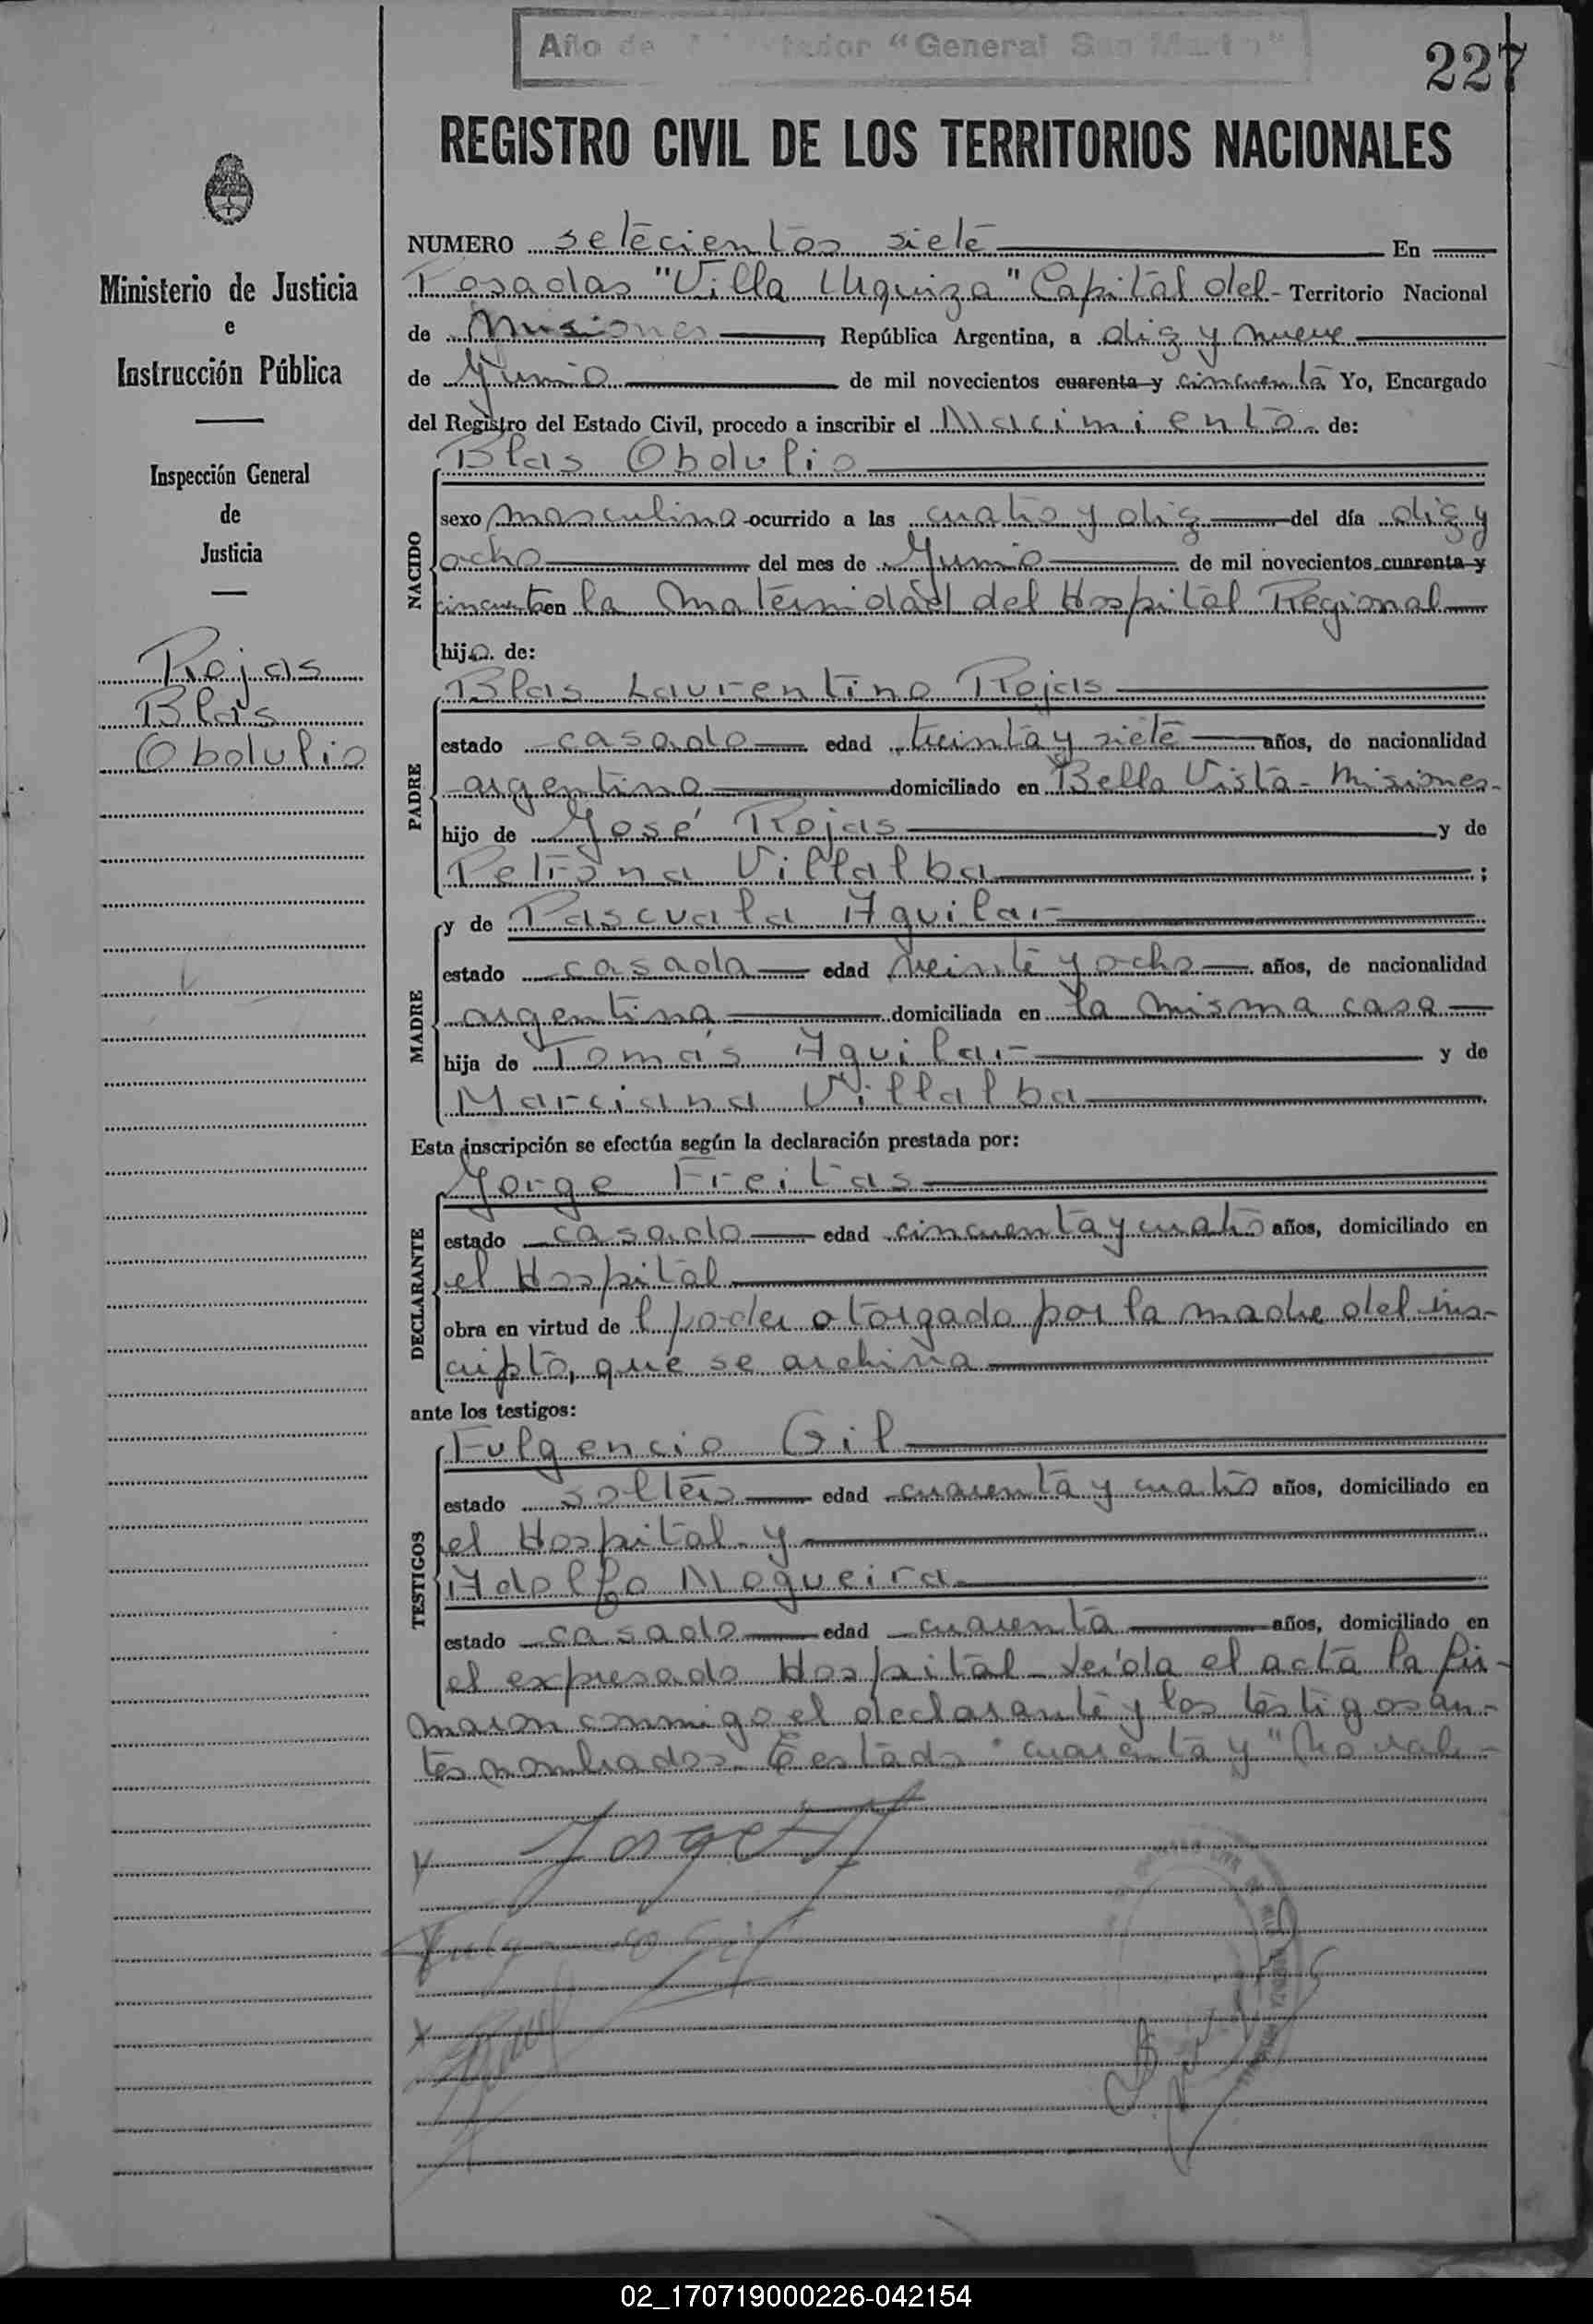 Año de Libertador "General San Martín"
227
REGISTRO CIVIL DE LOS TERRITORIOS NACIONALES
Ministerio de Justicia
e
Instrucción Pública
Inspección General
de
Justicia
Rojas
Blas
Obdulio
NUMERO setecientos siete En
Posadas "Villa Urquiza" Capital del - Territorio Nacional
de Misiones, República Argentina, a diez y nueve
de Junio de mil novecientos cuarenta y cincuenta Yo, Encargado
del Registro del Estado Civil, procedo a inscribir el Nacimiento de:
NACIDO
Blas Obdulio
sexo masculino ocurrido a las cuatro y diez del día diez y
ocho del mes de Junio de mil novecientos cuarenta y
cincuenta en la Maternidad del Hospital Regional
hijo de:
PADRE
Blas Laurentino Rojas
estado casado edad treinta y siete años, de nacionalidad
argentino domiciliado en Bella Vista - Misiones -
hijo de José Rojas y de
Petrona Villalba ;
MADRE
y de Pascuala Aguilar
estado casada edad veinte y ocho años, de nacionalidad
argentina domiciliada en la misma casa
hija de Tomás Aguilar y de
Marciana Villalba
Esta inscripción se efectúa según la declaración prestada por:
DECLARANTE
Jorge Freitas
estado casado edad cincuenta y cuatro años, domiciliado en
el Hospital
obra en virtud de l poder otorgado por la madre del ins-
cripto, que se archiva
ante los testigos:
TESTIGOS
Fulgencio Gil
estado soltero edad cuarenta y cuatro años, domiciliado en
el Hospital y
Adolfo Nogueira
estado casado edad cuarenta años, domiciliado en
el expresado Hospital - Leída el acta la fir-
maron conmigo el declarante y los testigos an-
tes nombrados. Testado "cuarenta y" No vale -
Jorge
Fulgencio Gil
02_170719000226-042154